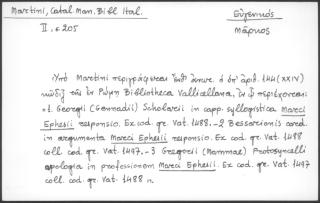 Martini, Catal. Man. Bibl. Ital.
II. σ 205
Εὐγενικός
Μάρκος
Ὑπὸ Martini περιγράφεται ὁ ὑπ' ἀριθ. 144 (XXIV)
κώδιξ τῆς ἐν Ρώμῃ Bibliotheca Vallicellana, ἐν ᾧ περιέχονται
1. Georgii (Gennadii) Scholarii in capp. syllogistica Marci
Ephesii responsio. Ex cod. gr. Vat. 1488. - 2 Bessarionis card.
in argumenta Marci Ephesii responsio. Ex cod. gr. Vat. 1488
coll. cod. gr. Vat. 1497. - 3 Gregorii (Mammae) Protosyncelli
apologia in professionem Marci Ephesii. Ex cod. gr. Vat. 1497
coll. cod. gr. Vat. 1488